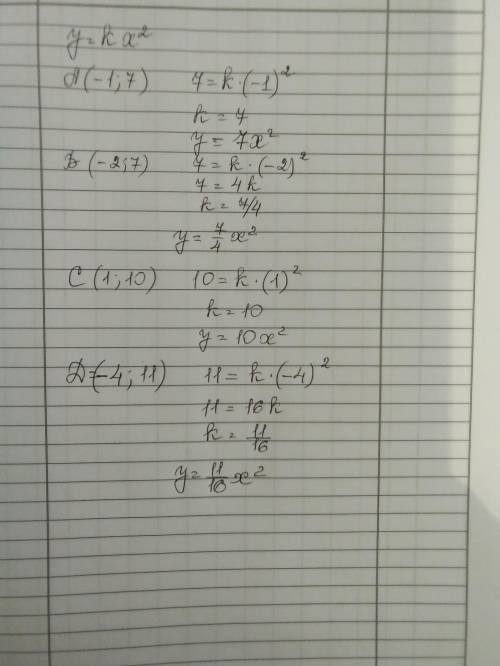 y = k x²
A (-1; 7) 7 = k · (-1)²
k = 7
y = 7x²
B (-2; 7) 7 = k · (-2)²
7 = 4k
k = 7/4
y = 7/4 x²
C (1; 10) 10 = k · (1)²
k = 10
y = 10x²
D = (-4; 11) 11 = k · (-4)²
11 = 16k
k = 11/16
y = 11/16 x²